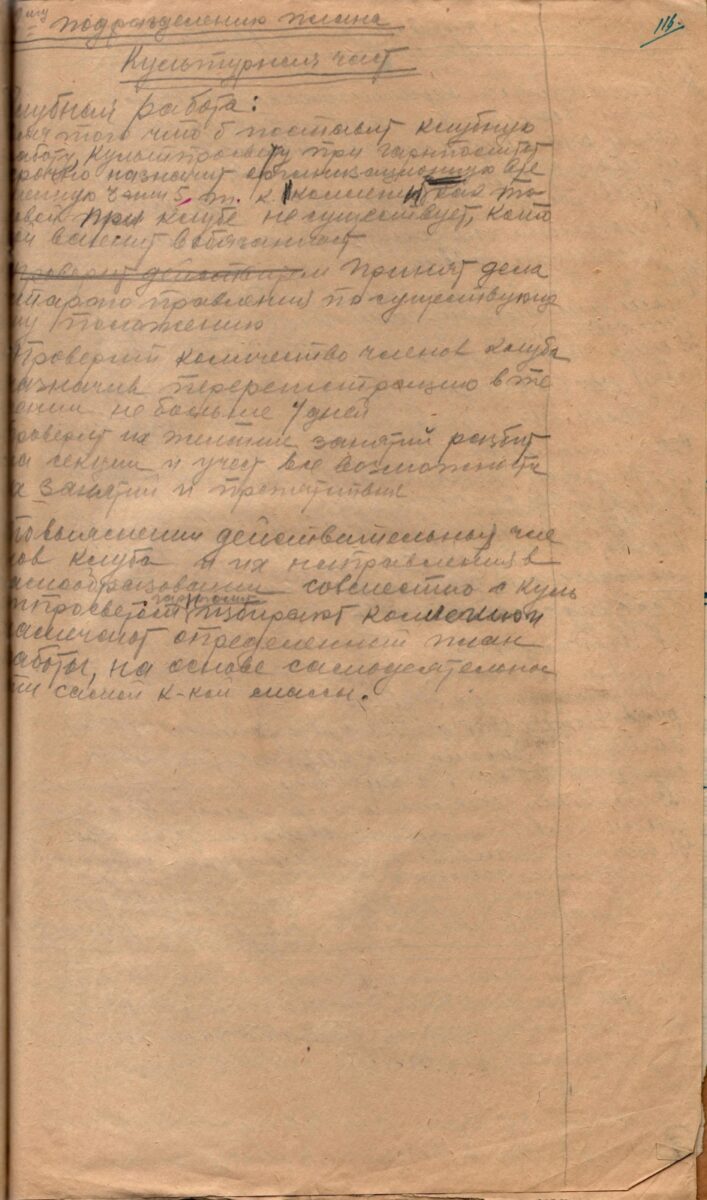 116.
подразделению плана
Культурная част
лубная работа:
для того что б поставит клубную
аботу, Культпросвету при
срочно назначит организационную вре
менную 5 т. к. как та
ковой при клубе не существует, кото
ой вменит в обязаност
проверит м принят дела
старого правления по существующе
му положению
Проверит количество членов клуба
азначив перерегистрацию в те
чении не больше 7 дней
роверит их желание занятий разбит
на секции и учест все возможности
х занятий и препятствия
По выяснении действительных чле
нов клуба и их направления в
самообразовании совместно с Куль
тпросветом избирают
намечают определенный план
аботы, на основе самодеятельнос
ти самой к-кой массы.